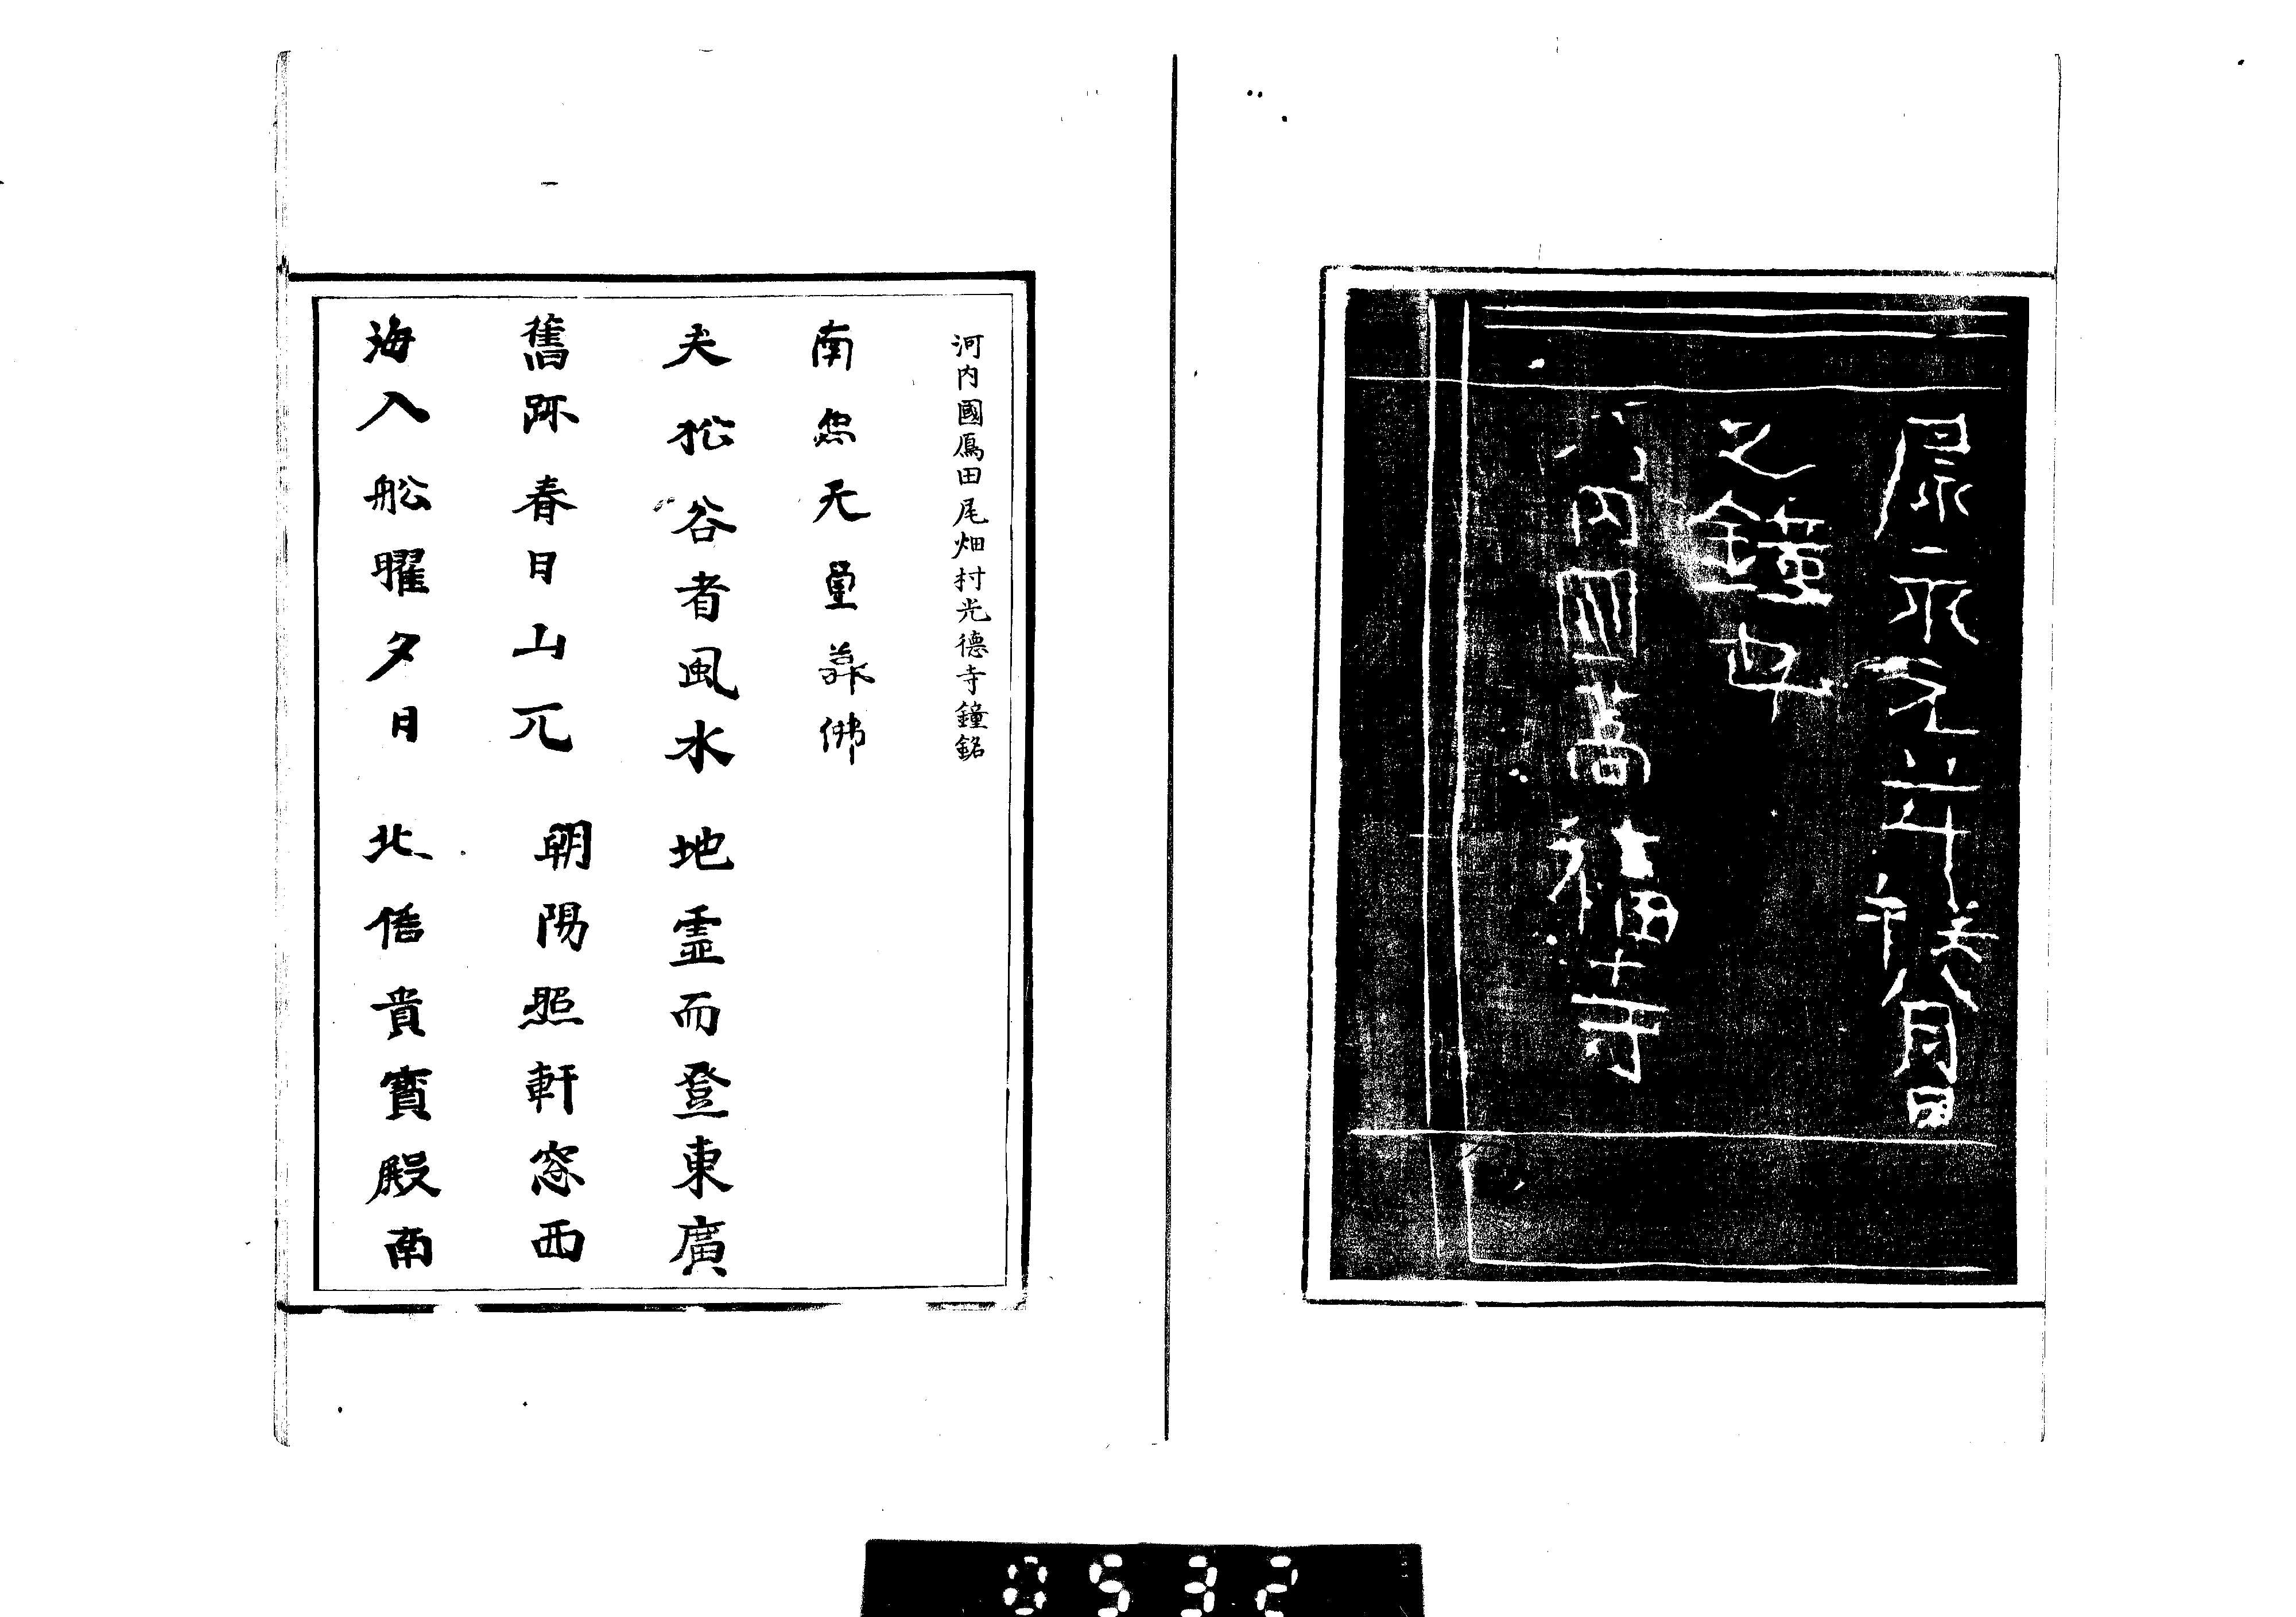 康永元年大才癸未八月日
之鐘也
河内國高福寺
河内國鴈田尾畑村光德寺鐘銘
南無无量壽佛
夫松谷者風水地霊而登東廣
舊跡春日山兀朝陽照軒窓西
海入舩曜夕日北借貴賓殿南
0532